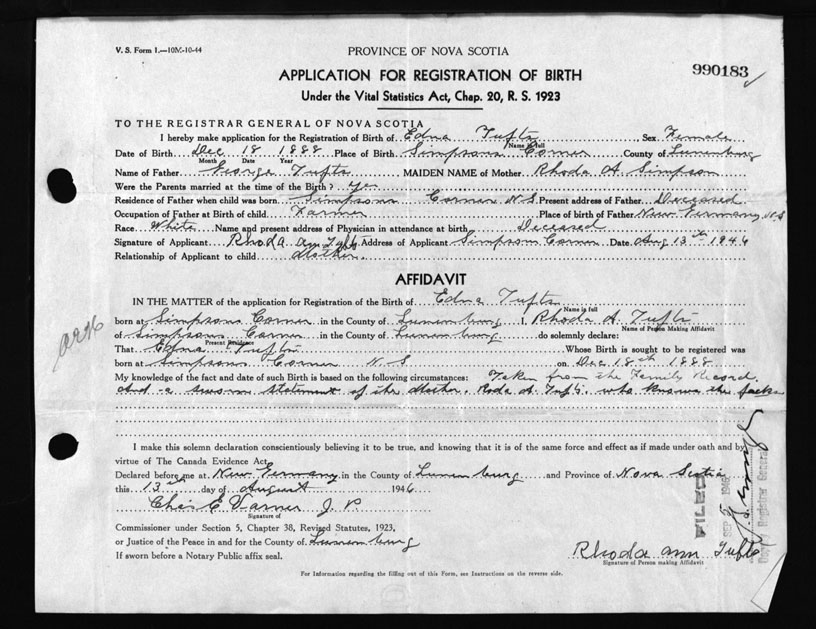 V. S. Form 1.—10M-10-44
PROVINCE OF NOVA SCOTIA
990183
APPLICATION FOR REGISTRATION OF BIRTH
Under the Vital Statistics Act, Chap. 20, R. S. 1923
TO THE REGISTRAR GENERAL OF NOVA SCOTIA
I hereby make application for the Registration of Birth of Edna Tufts, Sex Female
Name in full
Date of Birth Dec 18 1888 Place of Birth Simpsons Corner County of Lunenburg
Month Date Year
Name of Father George Tufts MAIDEN NAME of Mother Rhoda A. Simpson
Were the Parents married at the time of the Birth? yes
Residence of Father when child was born Simpsons Corner N.S. Present address of Father Deceased
Occupation of Father at Birth of child Farmer Place of birth of Father New Germany N.S
Race White Name and present address of Physician in attendance at birth Deceased
Signature of Applicant Rhoda Ann Tufts Address of Applicant Simpson Corner Date Aug 13th 1946
Relationship of Applicant to child Mother.
AFFIDAVIT
IN THE MATTER of the application for Registration of the Birth of Edna Tufts
Name in full
born at Simpsons Corner in the County of Lunenburg I, Rhoda A. Tufts
Name of Person Making Affidavit
of Simpsons Corner in the County of Lunenburg do solemnly declare:
Present Residence
That Edna Tufts Whose Birth is sought to be registered was
born at Simpsons Corner N S on Dec 18th 1888
My knowledge of the fact and date of such Birth is based on the following circumstances: Taken from the Family Record
and a sworn statement of the Mother. Roda A. Tufts. who knows the facts
I make this solemn declaration conscientiously believing it to be true, and knowing that it is of the same force and effect as if made under oath and by
virtue of The Canada Evidence Act.
Declared before me at New Germany in the County of Lunenburg and Province of Nova Scotia
this 13th day of August 1946
Chas E Varner J. P.
Signature of
Commissioner under Section 5, Chapter 38, Revised Statutes, 1923,
or Justice of the Peace in and for the County of Lunenburg
If sworn before a Notary Public affix seal.
FILED
SEP 1946
Dep. Registrar General
Rhoda Ann Tufts
Signature of Person making Affidavit
For Information regarding the filling out of this Form, see Instructions on the reverse side.